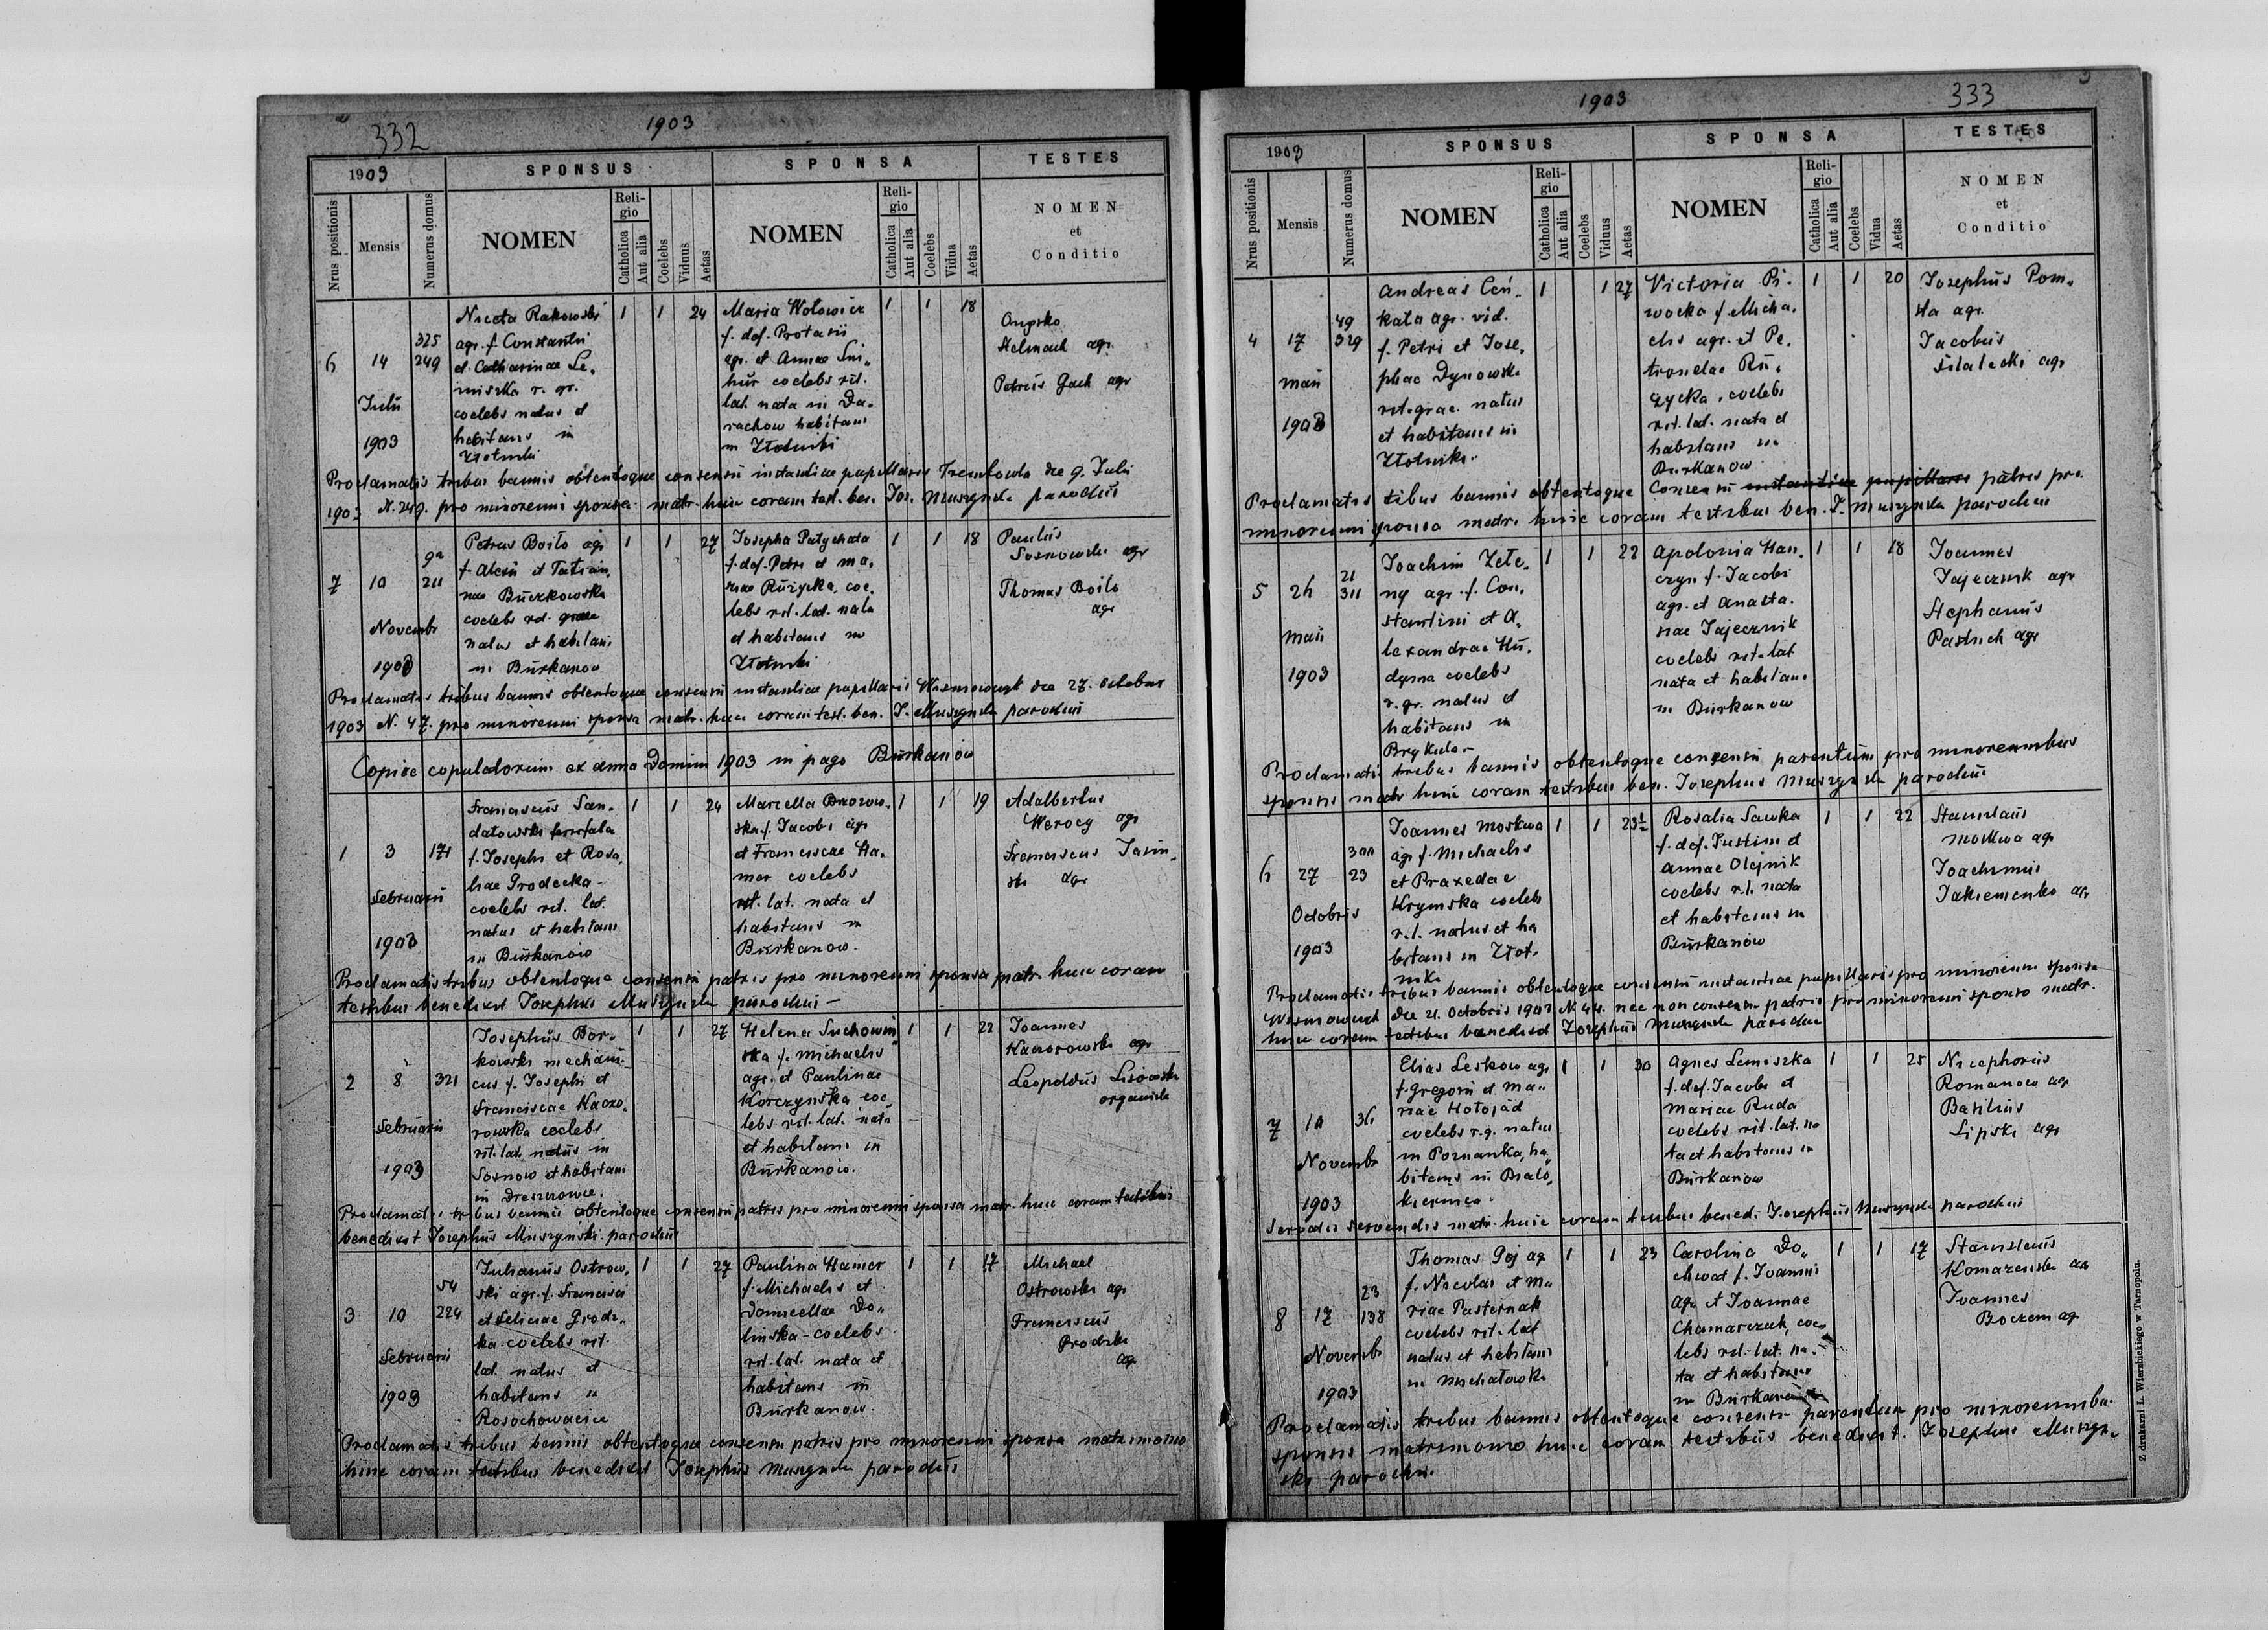 332
1903
1903
SPONSUS
SPONSA
TESTES
Nrus positionis
Mensis
Numerus domus
NOMEN
Religio
Catholica
Aut alia
Coelebs
Viduus
Aetas
NOMEN
Religio
Catholica
Aut alia
Coelebs
Vidua
Aetas
NOMEN
et
Conditio
6
14
Julii
1903
325
249
Niceta Rakowski
agr. f. Constantini
et Catharinae Le,
miszka r. gr.
coelebs natus et
habitans in
Złotniki
1
1
24
Maria Wołowicz
f. def. Protasii
agr. et Annae Smi„
hur coelebs rit.
lat. nata in Da„
rachow habitans
in Złotniki
1
1
18
Onufrko
Helmach agr.
Petrus Gach agr
Proclamatis tribus bannis obtentoque consensu instantiae pupillaris Trembowla die 9. Julii
1903 N. 249. pro minorenni sponsa matr. huic coram test. ben. Jos. Muszyński parochus
7
10
Novembr
1903
90
211
Petrus Boiło agr
f. Alexii et Tatian,
nae Buczkowska
coelebs rit. graec
natus et habitans
in Burkanow
1
1
27
Josepha Patychata
f. def. Petri et Ma,
riae Rużycka, coe,
lebs rit. lat. nata
et habitans in
Złotniki
1
1
18
Paulus
Sosnowski agr
Thomas Boiło
agr
Proclamatis tribus bannis obtentoque consensu instantiae pupillaris Wisniowczyk die 27. Octobris
1903 N. 47. pro minorenni sponsa matr. huic coram test. ben. J. Muszyński parochus
Copiae copulatorum ex anno Domini 1903 in pago Burkanów
1
3
Februarii
1903
171
Franciscus San„
datowski
f. Josephi et Rosa,
liae Grodecka
coelebs rit. lat.
natus et habitans
in Burkanów
1
1
24
Marcella Brzozow„
ska f. Jacobi agr
et Franciscae Ha„
mer coelebs
rit. lat. nata et
habitans in
Burkanow.
1
1
19
Adalbertus
Werocy agr
Franciscus Jasin„
ski agr
Proclamatis tribus obtentoque consensu patris pro minorenni sponsa matr. huic coram
testibus benedixit Josephus Muszyński parochus –
2
8
Februarii
1903
321
Josephus Bor„
kowski mechani„
cus f. Josephi et
Franciscae Kaczo,
rowska coelebs
rit. lat. natus in
Sosnow et habitans
in Dreszczowce.
1
1
27
Helena Suchowin„
ska f. Michaelis
agr. et Paulinae
Korczynska coe,
lebs rit. lat. nata
et habitans in
Burkanów.
1
1
22
Joannes
Kaczorowski agr
Leopoldus Lisowski
organista
Proclamatis tribus bannis obtentoque consensu patris pro minorenni sponsa matr. huic coram testibus
benedixit Josephus Muszyński parochus
3
10
Februarii
1903
54
224
Julianus Ostrow,
ski agr. f. Francisci
et Feliciae Grodz„
ka coelebs rit.
lat. natus et
habitans in
Rosochowaciec
1
1
27
Paulina Hamer
f. Michaelis et
Domicellae Do„
linska – coelebs
rit. lat. nata et
habitans in
Burkanow.
1
1
17
Michael
Ostrowski agr
Franciscus
Grodzki
agr
Proclamatis tribus bannis obtentoque consensu patris pro minorenni sponsa matrimonio
huic coram testibus benedixit Josephus Muszyński parochus
1903
333
1903
SPONSUS
SPONSA
TESTES
Nrus positionis
Mensis
Numerus domus
NOMEN
Religio
Catholica
Aut alia
Coelebs
Viduus
Aetas
NOMEN
Religio
Catholica
Aut alia
Coelebs
Vidua
Aetas
NOMEN
et
Conditio
4
17
Maii
1903
49
329
Andreas Cen„
kała agr. vid.
f. Petri et Jose,
phae Dynowska
rit. graec. natus
et habitans in
Złotniki.
1
1
27
Victoria Pi„
wocka f. Micha„
elis agr. et Pe„
tronelae Ru„
życka, coelebs
rit. lat. nata et
habitans in
Burkanow
1
1
20
Josephus Pom„
sta agr.
Jacobus
agr
Proclamatis tribus bannis obtentoque consensu instantiae pupillaris patris pro
minorenni sponsa matr. huic coram testibus ben. J. Muszyński parochus
5
26
Maii
1903
21
311
Joachim Zele„
ny agr. f. Con„
stantini et A„
lexandrae Hu„
dyma coelebs
r. gr. natus et
habitans in
Brykula –
1
1
22
Apolonia Han„
czyn f. Jacobi
agr. et Anasta„
siae Jajecznik
coelebs rit. lat
nata et habitans
in Burkanow
1
1
18
Joannes
Jajecznik agr
Stephanus
Pastuch agr
Proclamatis tribus bannis obtentoque consensu parentum pro minorennibus
sponsis matr huic coram testibus ben. Josephus Muszyński parochus
6
27
Octobris
1903
300
23
Joannes Moskwa
agr f. Michaelis
et Praxedae
Krymska coelebs
r. l. natus et ha
bitans in Złot„
niki
1
1
23½
Rosalia Sawka
f. def. Justini et
Annae Olejnik
coelebs r. l. nata
et habitans in
Burkanów
1
1
22
Stanislaus
Moskwa agr
Joachimus
Jakiemenko agr
Proclamatis tribus bannis obtentoque consensu instantiae pupillaris pro minorenni sponsa
Wisniowczyk die 21. Octobris 1903 N. 44. nec non consensu patris pro minorenni sponso matr.
huic coram testibus benedixit Josephus Muszyński parochus
7
10
Novembr
1903
36
Elias Leskow agr
f. Gregorii et Ma„
riae Hołojad
coelebs r. g. natus
in Poznanka, ha„
bitans in Biało„
kiernica.
1
1
30
Agnes Lemiszka
f. def. Jacobi et
Mariae Ruda
coelebs rit. lat. na
ta et habitans in
Burkanow
1
1
25
Nicephorus
Romanow agr
Basilius
Lipski agr
Servatis servandis matr. huic coram testibus bened. Josephus Muszyński parochus
8
17
Novembr
1903
23
138
Thomas Goj agr
f. Nicolai et Ma
riae Pasternak
coelebs rit. lat
natus et habitans
in Michałówka
1
1
23
Carolina Do„
chwat f. Joannis
agr. et Joannae
Chamarczuk, coe„
lebs rit. lat. na„
ta et habitans
in Burkanów
1
1
17
Stanislaus
Komarenski agr
Joannes
Boczem agr
Proclamatis tribus bannis obtentoque consensu parentum pro minorennibus
sponsis matrimonio huic coram testibus benedixit. Josephus Muszyń„
ski parochus.
Z drukarni L. Wierzbickiego w Tarnopolu.